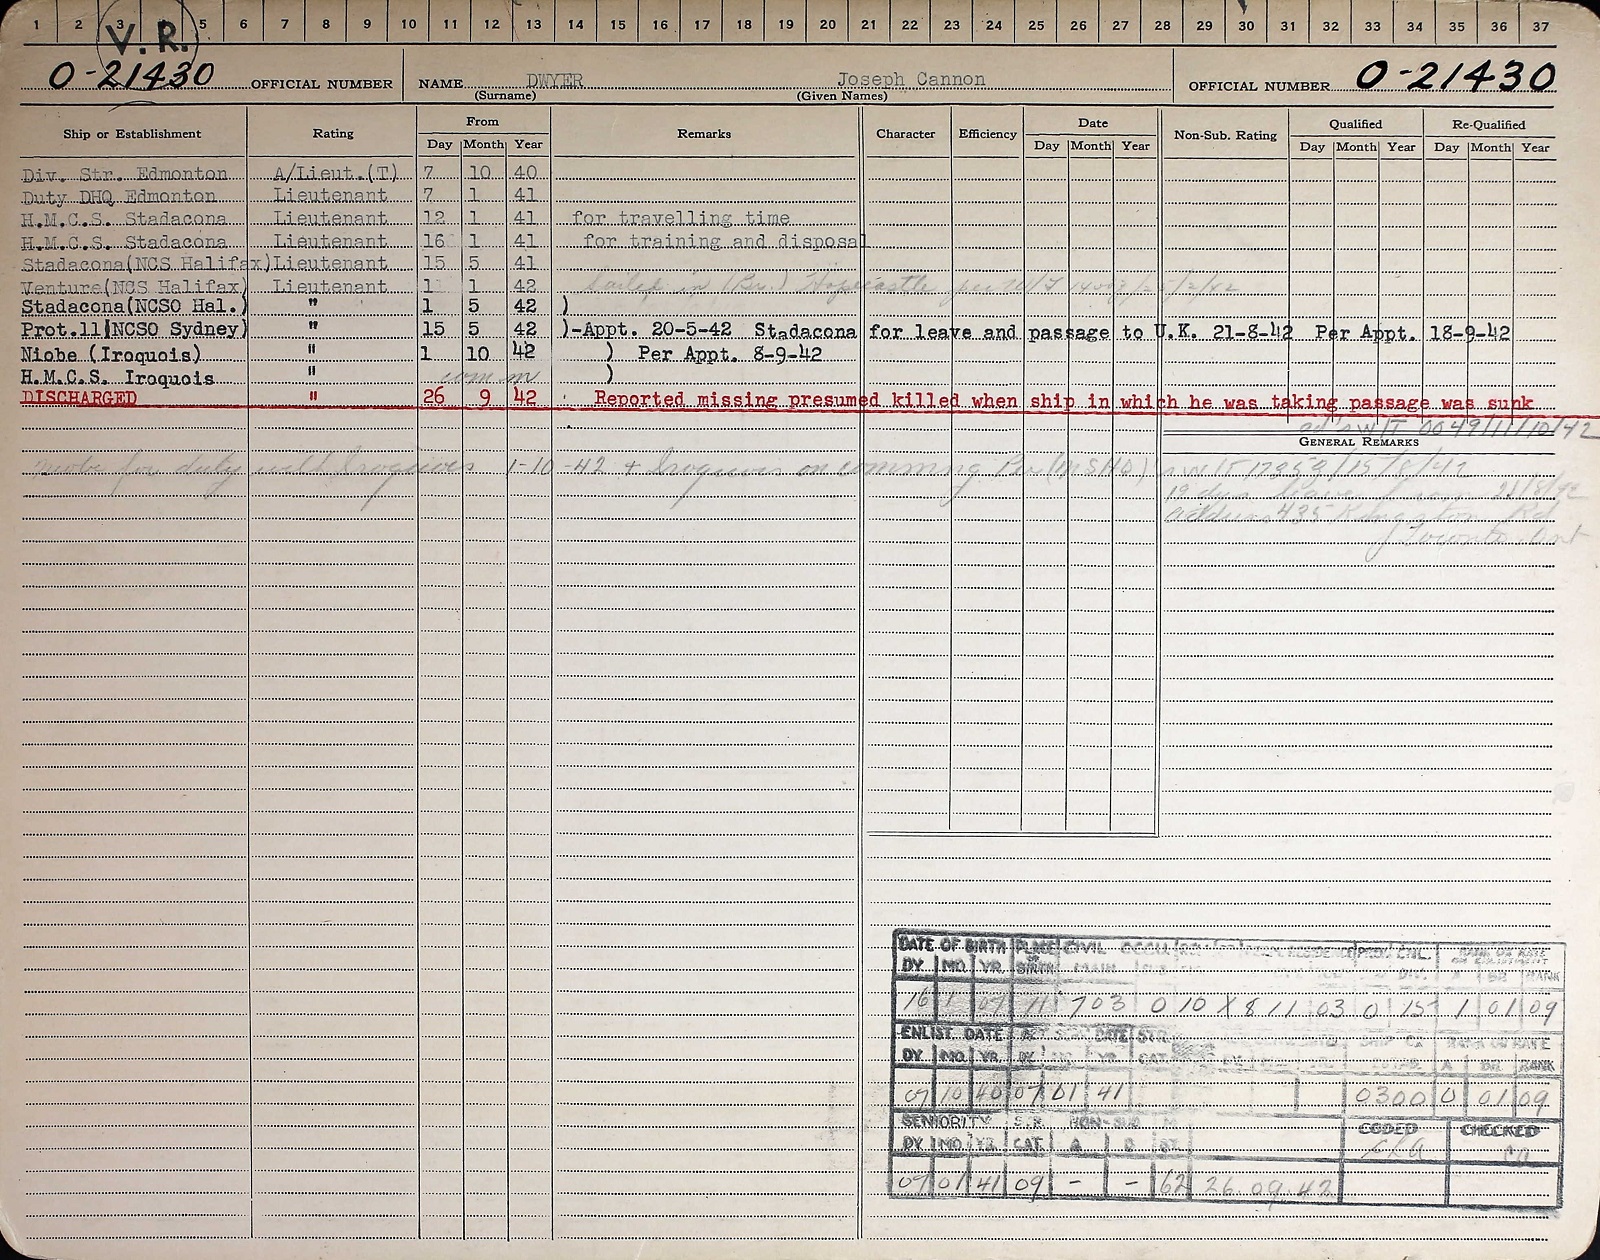 1 2 3 4 5 6 7 8 9 10 11 12 13 14 15 16 17 18 19 20 21 22 23 24 25 26 27 28 29 30 31 32 33 34 35 36 37
V.R.
O-21430 OFFICIAL NUMBER NAME DWYER Joseph Cannon OFFICIAL NUMBER O-21430
(Surname) (Given Names)
Ship or Establishment Rating From Remarks Character Efficiency Date Non-Sub. Rating Qualified Re-Qualified
Day Month Year Day Month Year Day Month Year Day Month Year
Div. Str. Edmonton A/Lieut.(T) 7 10 40
Duty DHQ Edmonton Lieutenant 7 1 41
H.M.C.S. Stadacona Lieutenant 12 1 41 for travelling time
H.M.C.S. Stadacona Lieutenant 16 1 41 for training and disposal
Stadacona(NCS Halifax)Lieutenant 15 5 41
Venture(NCS Halifax) Lieutenant 1 1 42 in
Stadacona(NCSO Hal.) " 1 5 42 )
Prot.11(NCSO Sydney) " 15 5 42 )-Appt. 20-5-42 Stadacona for leave and passage to U.K. 21-8-42 Per Appt. 18-9-42
Niobe (Iroquois) " 1 10 42 ) Per Appt. 8-9-42
H.M.C.S. Iroquois " comm )
DISCHARGED " 26 9 42 Reported missing presumed killed when ship in which he was taking passage was sunk
GENERAL REMARKS
Niobe for duty with Iroquois 1-10-42 + Iroquois on comming
leave from 21/8/42
address 435 Kingston Rd
Toronto Ont
DATE OF BIRTH PLACE OF BIRTH CIVIL ENL.
DY. MO. YR. MAIN RANK
16 1 07 11 703 0 10 X 8 11 03 0 15 1 01 09
ENLIST. DATE DATE
DY. MO. YR. YR. CAT. RANK
07 10 40 07 01 41 0300 0 01 09
SENIORITY CODED CHECKED
DY. MO. YR. CAT. A
07 01 41 09 - - 62 26 09 42